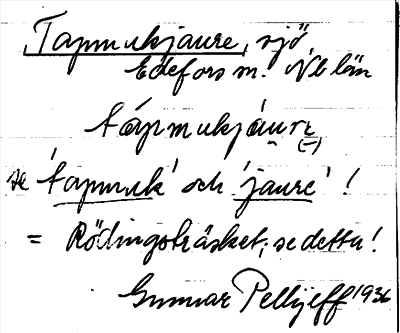 Tapmukjaure, sjö
Edefors sn. Nb län
tápmukjáurε
(-)
se 'tapmuk' och 'jaure' !
= Rödingsträsket, se detta!
Gunnar Pellijeff 1936